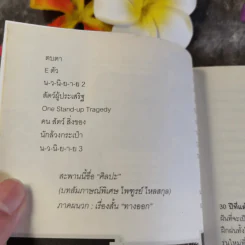 ตบตา
E ตัว
น-ว-นิ-ย-า-ย 2
สัตว์ผู้ประเสริฐ
One Stand-up Tragedy
คน สัตว์ สิ่งของ
นักล้วงกระเป๋า
น-ว-นิ-ย-า-ย 3
สะพานนี้ชื่อ “ศิลปะ”
(บทสัมภาษณ์พิเศษ ไพฑูรย์ ไหลสกุล)
ภาคผนวก : เรื่องสั้น “ทางออก”
30 ปีที่แล้